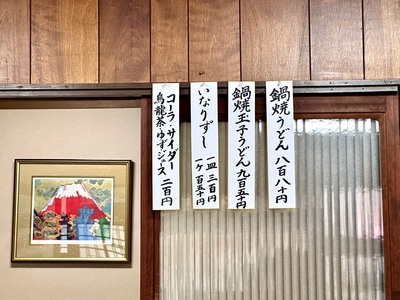 鍋焼うどん 八百八十円
鍋焼玉子うどん 九百五十円
いなりずし 一皿 三百円
一ケ 百五十円
コーラ・サイダー
烏龍茶・ゆずジュース 二百円